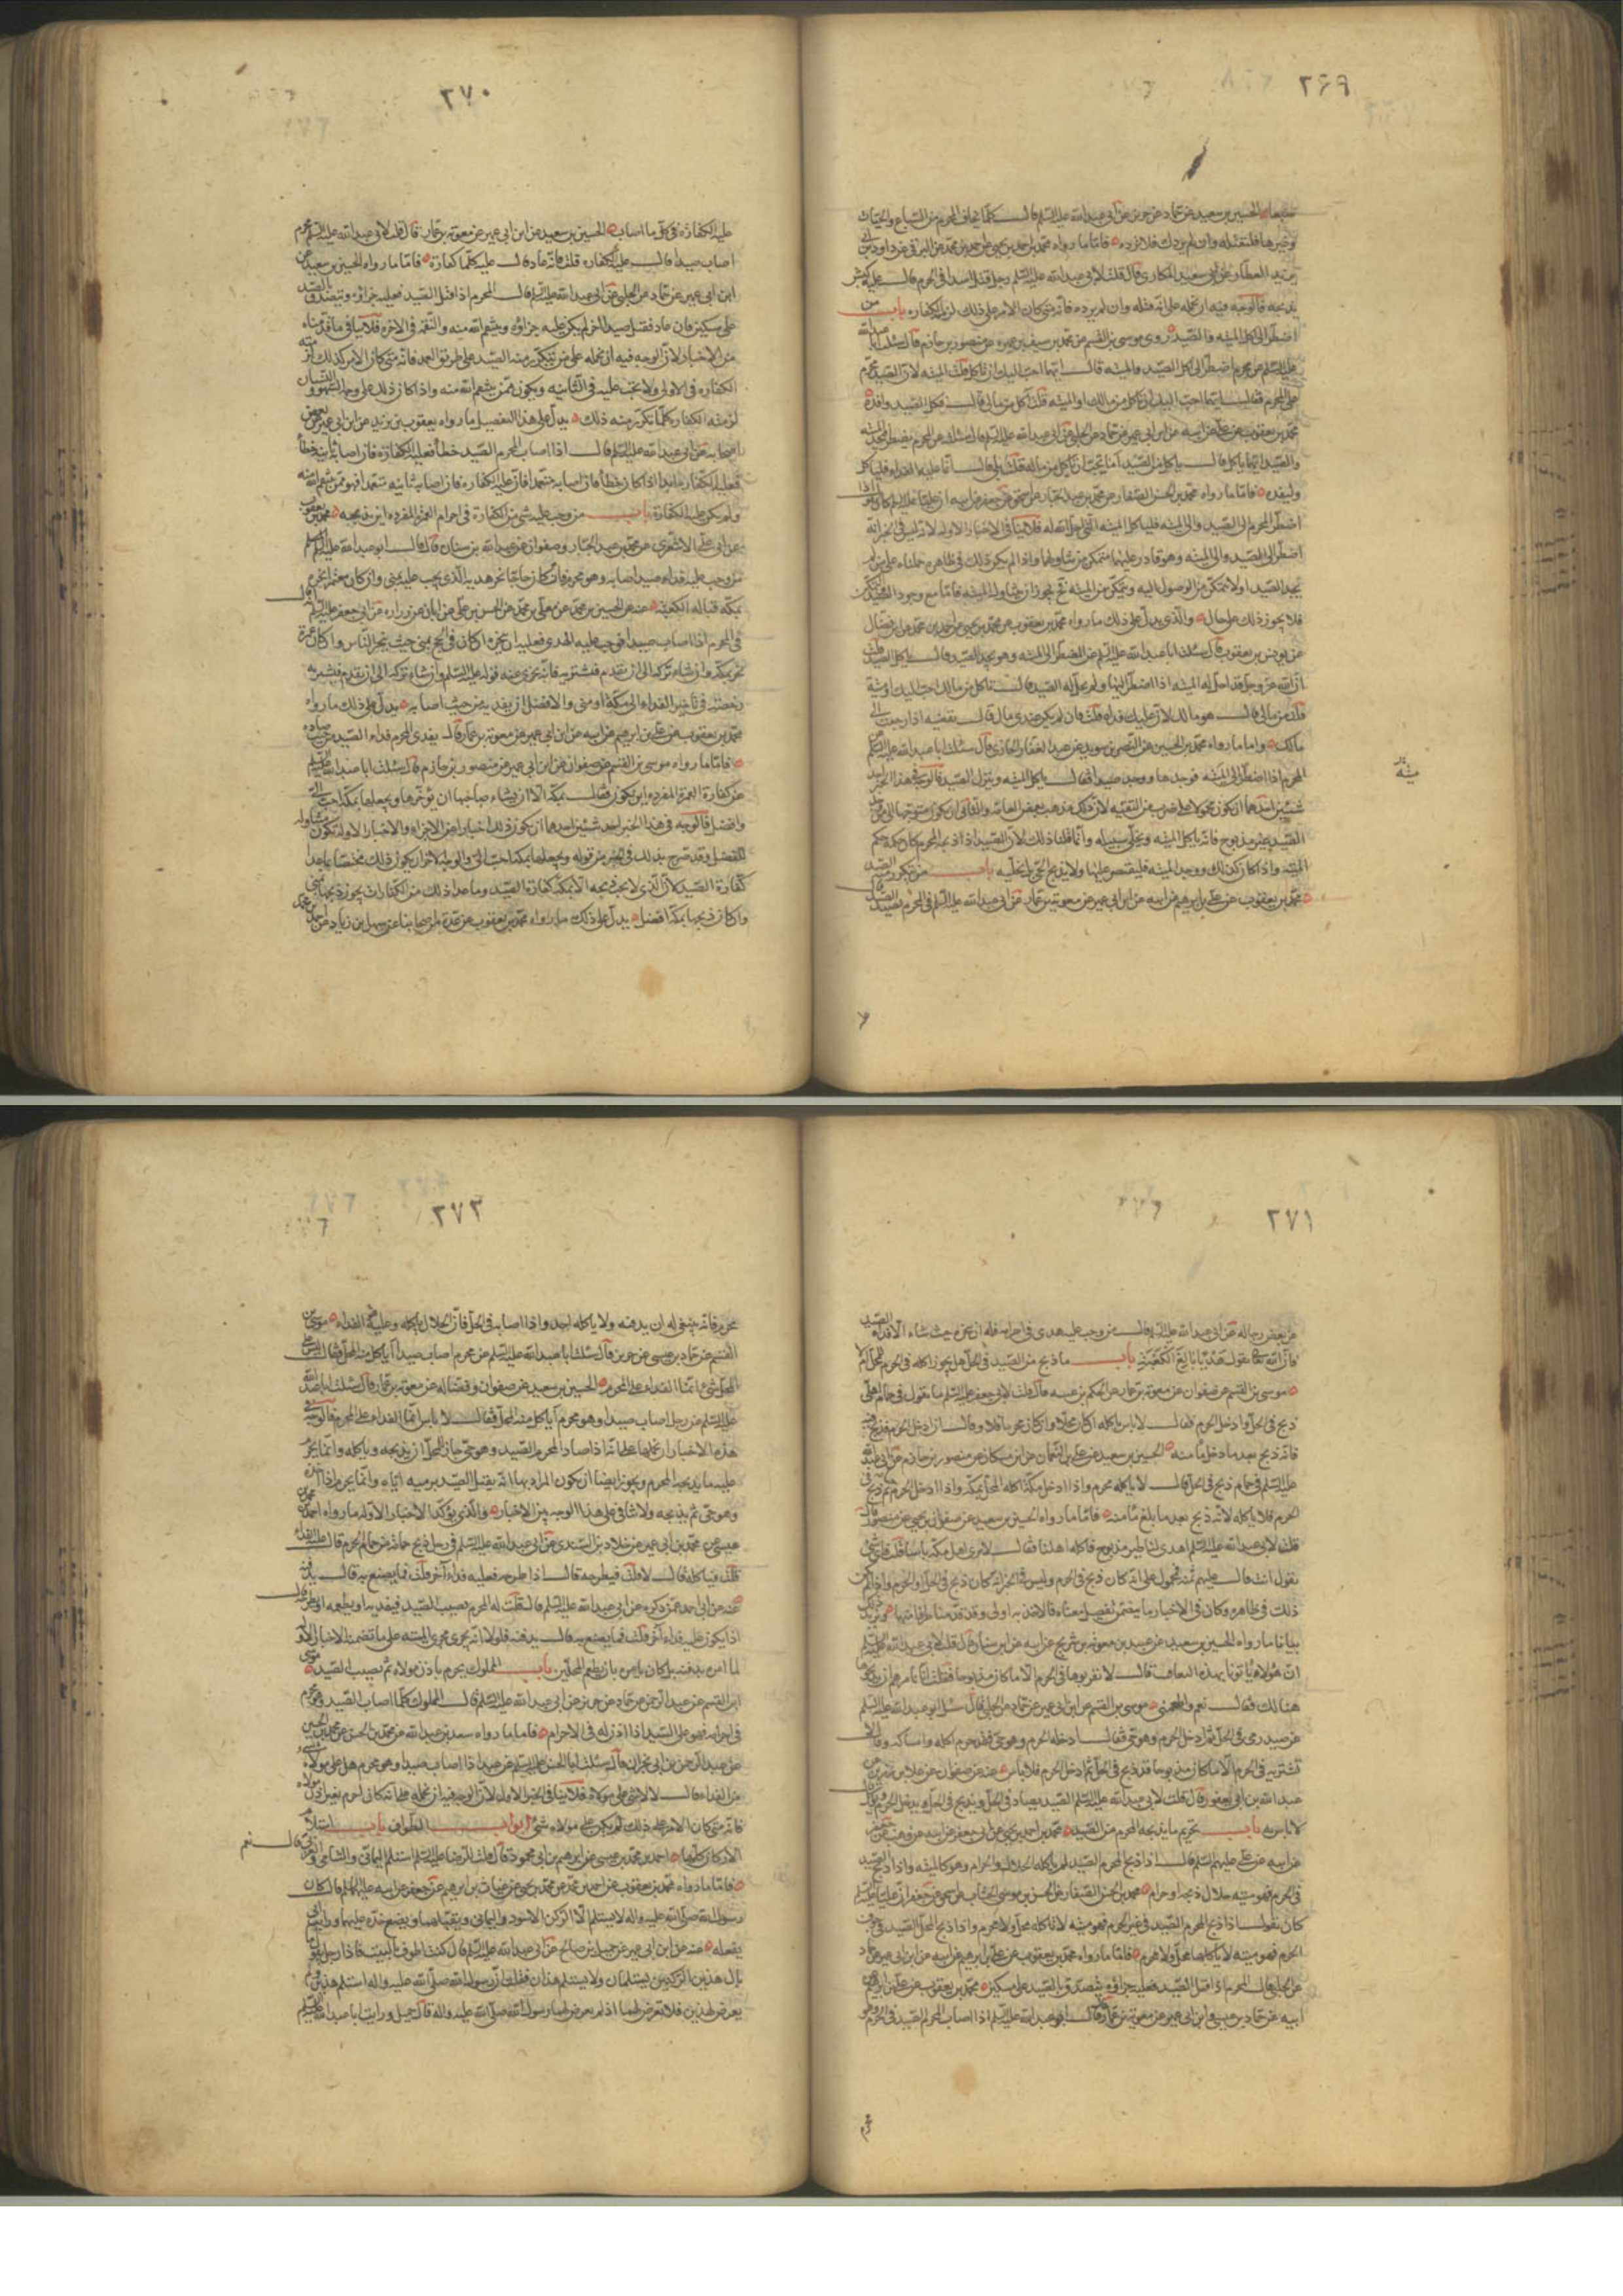 ٢٦٩
الحسين بن سعيد عن حماد عن حريز عن ابى عبد الله عليه السلم قال كلما يخاف المحرم من السباع والحيات
وغيرها فليقتله وان لم يردك فلا ترده فاما ما رواه محمد بن احمد بن يحيى عن
عن ابى سعيد المكارى قال قلت لابى عبد الله عليه السلم رجل قتل اسدا فى الحرم قال عليه كبش
يذبحه فالوجه فيه ان نحمله على انه قتله وان لم يرده فانه متى كان الامر على ذلك لزمه الكفاره باب من
اضطر الى اكل الميته والصيد روى موسى بن القسم عن محمد بن سيف بن عميره عن منصور بن حازم قال سئلت ابا عبد الله
عليه السلم عن محرم اضطر الى اكل الصيد والميته قال ايهما احب اليك ان تاكل قلت الميته لان الصيد محرم
على المحرم فقال ايهما احب اليك ان تاكل من مالك او الميته قلت آكل من مالى قال فكل الصيد وافده
محمد بن يعقوب عن على عن ابيه عن ابن ابى عمير عن حماد عن الحلبى عن ابى عبد الله عليه السلم قال سئلته عن المحرم يضطر فيجد الميته
والصيد ايهما ياكل قال ياكل من الصيد اما يحب ان ياكل من ماله قلت بلى قال انما عليه الفداء فلياكل
وليفده فاما ما رواه محمد بن الحسن الصفار عن محمد بن عبد الجبار عن اسحق عن جعفر عن ابيه ان عليا عليه السلم كان يقول اذا
اضطر المحرم الى الصيد والى الميته فلياكل الميته التى احل الله له فلا ينافى الاخبار الاوله لانه ليس فى الخبر انه
اضطر الى الصيد والى الميته وهو قادر عليهما متمكن من تناولهما واذا لم يكن ذلك فى ظاهره حملناه على من لم
يجد الصيد او لا يتمكن من الوصول اليه ويتمكن من الميته فح يجوز ان يتناول الميته فاما مع وجود الصيد والتمكن منه
فلا يجوز ذلك على حال والذى يدل على ذلك ما رواه محمد بن يعقوب عن محمد بن يحيى عن احمد بن محمد عن ابن فضال
عن يونس بن يعقوب قال سئلت ابا عبد الله عليه السلم عن المضطر الى الميته وهو يجد الصيد قال ياكل الصيد قلت
ان الله عز وجل قد احل له الميته اذا اضطر اليها ولم يحل له الصيد قال تاكل من مالك احب اليك او ميته
قلت من مالى قال هو مالك لان عليك فداه قلت فان لم يكن عندى مال قال تقضيه اذا رجعت الى
مالك واما ما رواه محمد بن الحسين عن النضر بن سويد عن عبد الغفار الجازى قال سئلت ابا عبد الله عليه السلم عن
المحرم اذا اضطر الى الميته فوجدها ووجد صيدا فقال ياكل الميته ويترك الصيد فالوجه فى هذا الخبر احد
شيئين احدهما ان يكون محمولا على ضرب من التقيه لان ذلك مذهب بعض العامة والثانى ان يكون متوجها الى من وجد
الصيد غير مذبوح فانه ياكل الميته ويخلى سبيله وانما قلنا ذلك لان الصيد اذا ذبحه المحرم كان حكمه حكم
الميته واذا كان كذلك ووجد الميته فليقتصر عليها ولا يذبح الحى بل يخليه باب من تكرر منه الصيد
محمد بن يعقوب عن على بن ابرهيم عن ابيه عن ابن ابى عمير عن معوية بن عمار عن ابى عبد الله عليه السلم فى المحرم يصيد الصيد قال
ميته
٢٧٠
عليه الكفاره فى كل ما اصاب الحسين بن سعيد عن ابن ابى عمير عن معوية بن عمار قال قلت لابى عبد الله عليه السلم محرم
اصاب صيدا قال عليه الكفاره قلت فانه عاد قال عليه كلما عاد كفارة فاما ما رواه الحسين بن سعيد عن
ابن ابى عمير عن حماد عن الحلبى عن ابى عبد الله عليه السلم قال المحرم اذا قتل الصيد فعليه جزاؤه ويتصدق بالصيد
على مسكين فان عاد فقتل صيدا اخر لم يكن عليه جزاؤه وينتقم الله منه والنقمه فى الاخره فلا ينافى ما قدمناه
من الاخبار لان الوجه فيه ان نحمله على من يتكرر منه الصيد على طريق العمد فانه متى كان الامر كذلك لزمته
الكفاره فى الاولى ولا تجب عليه فى الثانيه ويكون ممن ينتقم الله منه واذا كان ذلك على وجه السهو والنسيان
لزمته الكفاره كلما تكرر منه ذلك يدل على هذا التفصيل ما رواه يعقوب بن يزيد عن ابن ابى عمير عن بعض
اصحابه عن ابى عبد الله عليه السلم قال اذا اصاب المحرم الصيد خطأ فعليه الكفاره فان اصابه ثانيه خطأ
فعليه الكفاره ابدا اذا كان خطأ فان اصابه متعمدا فان عليه الكفاره فان اصابه ثانيه متعمدا فهو ممن ينتقم الله منه
ولم يكن عليه الكفارة باب من وجب عليه شىء من الكفارة فى احرام العمرة المفرده اين يذبحه محمد بن يعقوب
عن ابى على الاشعرى عن محمد بن عبد الجبار وصفوان عن عبد الله بن سنان قال قال ابو عبد الله عليه السلم
من وجب عليه فداء صيد اصابه وهو محرم فان كان حاجا نحر هديه الذى يجب عليه بمنى وان كان معتمرا نحره
بمكة قبالة الكعبة عنه عن الحسين بن محمد عن معلى بن محمد عن الحسن بن على عن ابان عن زراره عن ابى جعفر عليه السلم قال
فى المحرم اذا اصاب صيدا فوجب عليه الهدى فعليه ان ينحره ان كان فى الحج بمنى حيث ينحر الناس وان كان عمرة
نحر بمكة وان شاء تركه الى ان يقدم فيشتريه فانه يجزى عنه قوله عليه السلم وان شاء تركه الى ان يقدم فيشتريه
رخصة فى تاخير الفداء الى مكة او منى والافضل ان يفديه من حيث اصابه يدل على ذلك ما رواه
محمد بن يعقوب عن على بن ابرهيم عن ابيه عن ابن ابى عمير عن معوية بن عمار قال يفدى المحرم فداء الصيد من حيث صاده
فاما ما رواه موسى بن القسم عن صفوان عن ابن ابى عمير عن منصور بن حازم قال سئلت ابا عبد الله عليه السلم
عن كفارة العمرة المفرده اين يكون فقال بمكة الا ان يشاء صاحبها ان يؤخرها ويجعلها بمكة احب الى
وافضل فالوجه فى هذا الخبر احد شيئين احدهما ان يكون ذلك اخبارا عن الاجزاء والاخبار الاولة تكون متناوله
للفضل وقد صرح بذلك فى الخبر من قوله ويجعلها بمكة احب الى والوجه الاخر ان يكون ذلك مختصا بما عدا
كفارة الصيد لان الذى لا يجب ذبحه الا بمكة كفارة الصيد وما عدا ذلك من الكفارات يجوز ذبحها بمنى
وان كان ذبحها بمكة افضل يدل على ذلك ما رواه محمد بن يعقوب عن عدة من اصحابنا عن سهل بن زياد عن احمد بن محمد
٢٧١
عن بعض رجاله عن ابى عبد الله عليه السلم قال من وجب عليه هدى فى احرامه فله ان ينحره حيث شاء الا فداء الصيد
فان الله تعالى يقول هديا بالغ الكعبة باب ما ذبح من الصيد فى الحل هل يجوز اكله فى الحرم للمحل ام لا
موسى بن القسم عن صفوان عن معوية بن عمار عن الحكم بن عتيبه قال قلت لابى جعفر عليه السلم ما تقول فى حمام اهلى
ذبح فى الحل وادخل الحرم فقال لا باس باكله ان كان محلا وان كان محرما فلا وقال ان ادخل الحرم فذبح فيه
فانه ذبح بعد ما دخل مامنه الحسين بن سعيد عن على بن النعمان عن ابن مسكان عن منصور بن حازم عن ابى عبد الله
عليه السلم فى حمام ذبح فى الحل قال لا ياكله محرم واذا ادخل مكة اكله المحل بمكة واذا ادخل الحرم حيا ثم ذبح فى
الحرم فلا ياكله لانه ذبح بعد ما بلغ مامنه فاما ما رواه الحسين بن سعيد عن صفوان بن يحيى عن منصور قال
قلت لابى عبد الله عليه السلم اهدى لنا طير مذبوح فاكله اهلنا فقال لا يرى اهل مكة باسا قلت فاى شىء
تقول انت قال عليهم ثمنه فمحمول على انه كان ذبح فى الحرم وليس فى الخبر انه كان ذبح فى الحل او الحرم واذا لم يكن
ذلك فى ظاهره وكان فى الاخبار ما يتضمن تفصيل معناه فالاخذ به اولى وقد قدمنا طرفا منها ويزيد ذلك
بيانا ما رواه الحسين بن سعيد عن عبيد بن معوية بن شريح عن ابيه عن ابن سنان قال قلت لابى عبد الله عليه السلم
ان هؤلاء ياتونا بهذه اليعاقيب قال لا تقربوها فى الحرم الا ما كان مذبوحا فقلت انا نامرهم ان يذبحوها
هنالك فقال نعم واطعمنى موسى بن القسم عن ابن ابى عمير عن حماد عن الحلبى قال سئل ابو عبد الله عليه السلم
عن صيد رمى فى الحل ثم ادخل الحرم وهو حى فقال اذا دخله الحرم وهو حى فقد حرم اكله وامساكه وقال لا
تشتريه فى الحرم الا ما كان مذبوحا قد ذبح فى الحل ثم ادخل الحرم فلا باس عنه عن صفوان عن علا بن رزين عن
عبد الله بن ابى يعفور قال قلت لابى عبد الله عليه السلم الصيد يصاد فى الحل ويذبح فى الحل ويدخل الحرم ويوكل قال
لا باس به باب تحريم ما يذبحه المحرم من الصيد محمد بن احمد بن يحيى عن ابى جعفر عن ابيه عن وهب عن جعفر
عن ابيه عن على عليهم السلم قال اذا ذبح المحرم الصيد لم ياكله الحلال والحرام وهو كالميته واذا ذبح الصيد
فى الحرم فهو ميته حلال ذبحه او حرام محمد بن الحسن الصفار عن الحسن بن موسى الخشاب عن اسحق عن جعفر ان عليا عليه السلم
كان يقول اذا ذبح المحرم الصيد فى غير الحرم فهو ميته لا ياكله محل ولا محرم واذا ذبح المحل الصيد فى جوف
الحرم فهو ميته لا ياكله محل ولا محرم فاما ما رواه محمد بن يعقوب عن على بن ابرهيم عن ابيه عن ابن ابى عمير عن حماد
عن الحلبى قال المحرم اذا قتل الصيد فعليه جزاؤه ويتصدق بالصيد على مسكين محمد بن يعقوب عن على بن ابرهيم عن
ابيه عن حماد بن عيسى وابن ابى عمير عن معوية بن عمار قال قال ابو عبد الله عليه السلم اذا اصاب المحرم الصيد فى الحرم وهو
محرم
٢٧٢
محرم فانه ينبغى له ان يدفنه ولا ياكله احد واذا اصابه فى الحل فان الحلال ياكله وعليه هو الفداء موسى بن
القسم عن حماد بن عيسى عن حريز قال سئلت ابا عبد الله عليه السلم عن محرم اصاب صيدا أياكل منه المحل فقال ليس على
المحل شىء انما الفداء على المحرم الحسين بن سعيد عن صفوان وفضاله عن معوية بن عمار قال سئلت ابا عبد الله
عليه السلم عن رجل اصاب صيدا وهو محرم أياكل منه المحل فقال لا باس انما الفداء على المحرم فالوجه فى
هذه الاخبار ان نحملها على انه اذا صاد المحرم الصيد وهو حى جاز للمحل ان يذبحه وياكله وانما يحرم
عليه ما يذبحه المحرم ويجوز ايضا ان يكون المراد بها انه يقتل الصيد برميه اياه وانما يحرم اذا اخذه
وهو حى ثم يذبحه ولا تنافى على هذا الوجه بين الاخبار والذى يؤكد الاخبار الاوله ما رواه احمد بن محمد بن
عيسى عن محمد بن ابى عمير عن خلاد بن السندى عن ابى عبد الله عليه السلم فى رجل ذبح حمامة من حمام الحرم قال عليه الفداء
قلت فياكله قال لا قلت فيطرحه قال اذا طرحه فعليه فداء آخر قلت فما يصنع به قال يدفنه
عنه عن ابى احمد عمن ذكره عن ابى عبد الله عليه السلم قال قلت له المحرم يصيب الصيد فيفديه او يطعمه او يطرحه قال
اذا يكون عليه فداء آخر قلت فما يصنع به قال يدفنه فلولا انه يجرى مجرى الميته على ما تضمنه الاخبار الاوله
لما امره بدفنه بل كان يامره بان يطعم المحلين باب المملوك يحرم باذن مولاه ثم يصيب الصيد موسى
ابن القسم عن عبد الرحمن عن حماد عن حريز عن ابى عبد الله عليه السلم قال المملوك كلما اصاب الصيد وهو محرم
فى احرامه فهو على السيد اذا اذن له فى الاحرام فاما ما رواه سعد بن عبد الله عن محمد بن الحسن عن محمد بن الحسين
عن عبد الرحمن بن ابى نجران قال سئلت ابا الحسن عليه السلم عن عبد اصاب صيدا وهو محرم هل على مولاه شىء
من الفداء قال لا لا شىء على مولاه فلا ينافى الخبر الاول لان الوجه فيه ان نحمله على انه كان احرم بغير اذن مولاه
فانه متى كان الامر على ذلك لم يكن على مولاه شىء ابواب الطواف باب استلام
الاركان كلها احمد بن محمد بن عيسى عن ابرهيم بن ابى محمود قال قلت للرضا عليه السلم استلم اليمانى والشامى والغربى قال نعم
فاما ما رواه محمد بن يعقوب عن احمد بن محمد عن محمد بن يحيى عن غياث بن ابرهيم عن جعفر عن ابيه عليهما السلم قال كان
رسول الله صلى الله عليه واله لا يستلم الا الركن الاسود واليمانى ويقبلهما ويضع خده عليهما ورايت ابى
يفعله عنه عن ابن ابى عمير عن جميل بن صالح عن ابى عبد الله عليه السلم قال كنت اطوف بالبيت فاذا رجل يقول
ما بال هذين الركنين يستلمان ولا يستلم هذان فقلت ان رسول الله صلى الله عليه واله استلم هذين ولم
يعرض لهذين فلا تعرض لهما اذا لم يعرض لهما رسول الله صلى الله عليه واله قال جميل ورايت ابا عبد الله عليه السلم